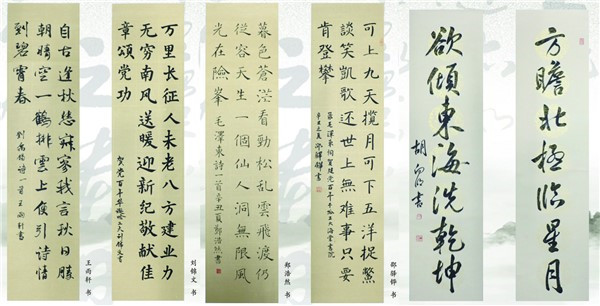 方瞻北極臨星月
欲傾東海洗乾坤
可上九天揽月可下五洋捉鱉
談笑凱歌还世上無难事只要
肯登攀
暮色蒼茫看勁松乱雲飛渡仍
從容天生一個仙人洞無限風
光在險峯 毛澤東詩一首辛丑夏鄭浩然書
郑浩然 书
万里长征人未老八方建业力
无穷南风送暖迎新纪敬献佳
章颂党功
贺党百年华诞於工大刘锦文书
刘锦文 书
自古逢秋悲寂寥我言秋日勝
朝晴空一鶴排雲上便引詩情
到碧霄春 劉禹錫诗一首王尚軒書
王尚轩 书